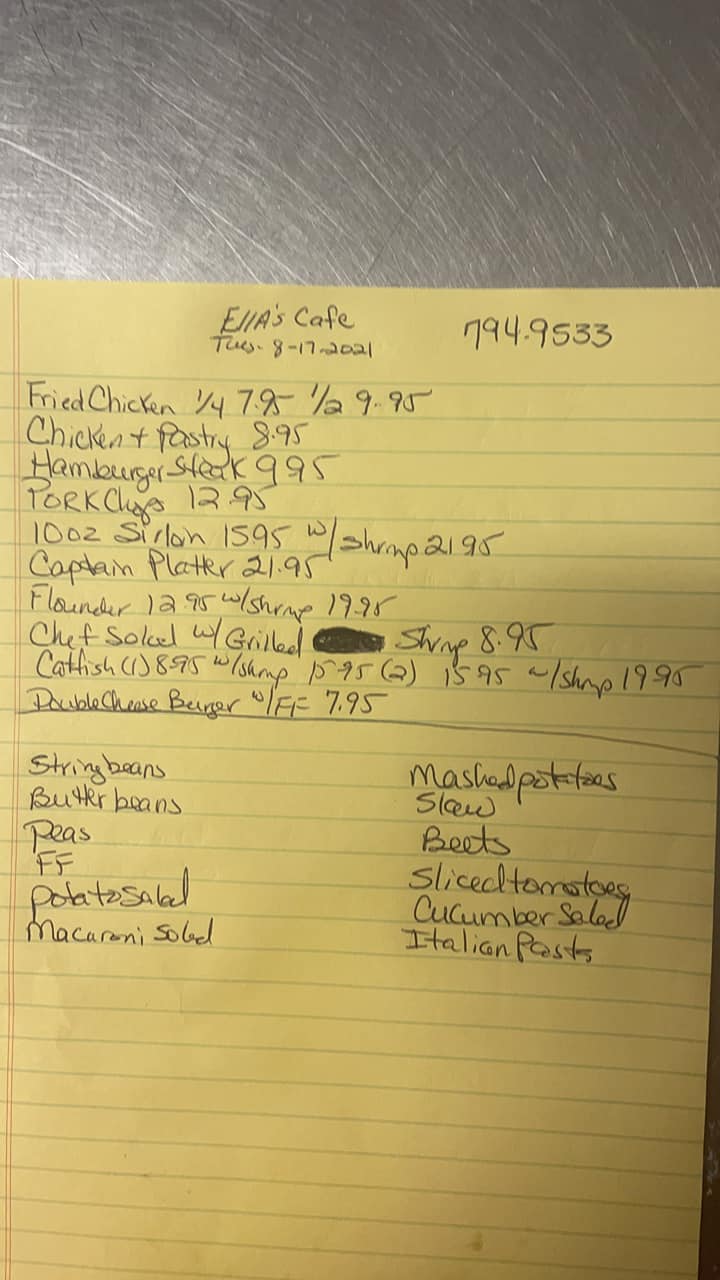 Ella's Cafe 794-9533
Tues. 8-17-2021
Fried Chicken 1/4 7.95 1/2 9.95
Chicken + Pastry 8.95
Hamburger Steak 9 95
Pork Chops 12.95
10oz Sirloin 15 95 w/ shrimp 21 95
Captain Platter 21.95
Flounder 12 95 w/shrimp 19.95
Chef Salad w/ Grilled Shrimp 8.95
Catfish (1) 8.95 w/shrimp 15 95 (2) 15 95 w/shrimp 19 95
Double Cheese Burger w/FF 7.95
String beans Mashed potatoes
Butter beans Slaw
Peas Beets
FF
Potato Salad Sliced tomatoes
Macaroni Salad Cucumber Salad
Italian Pasta